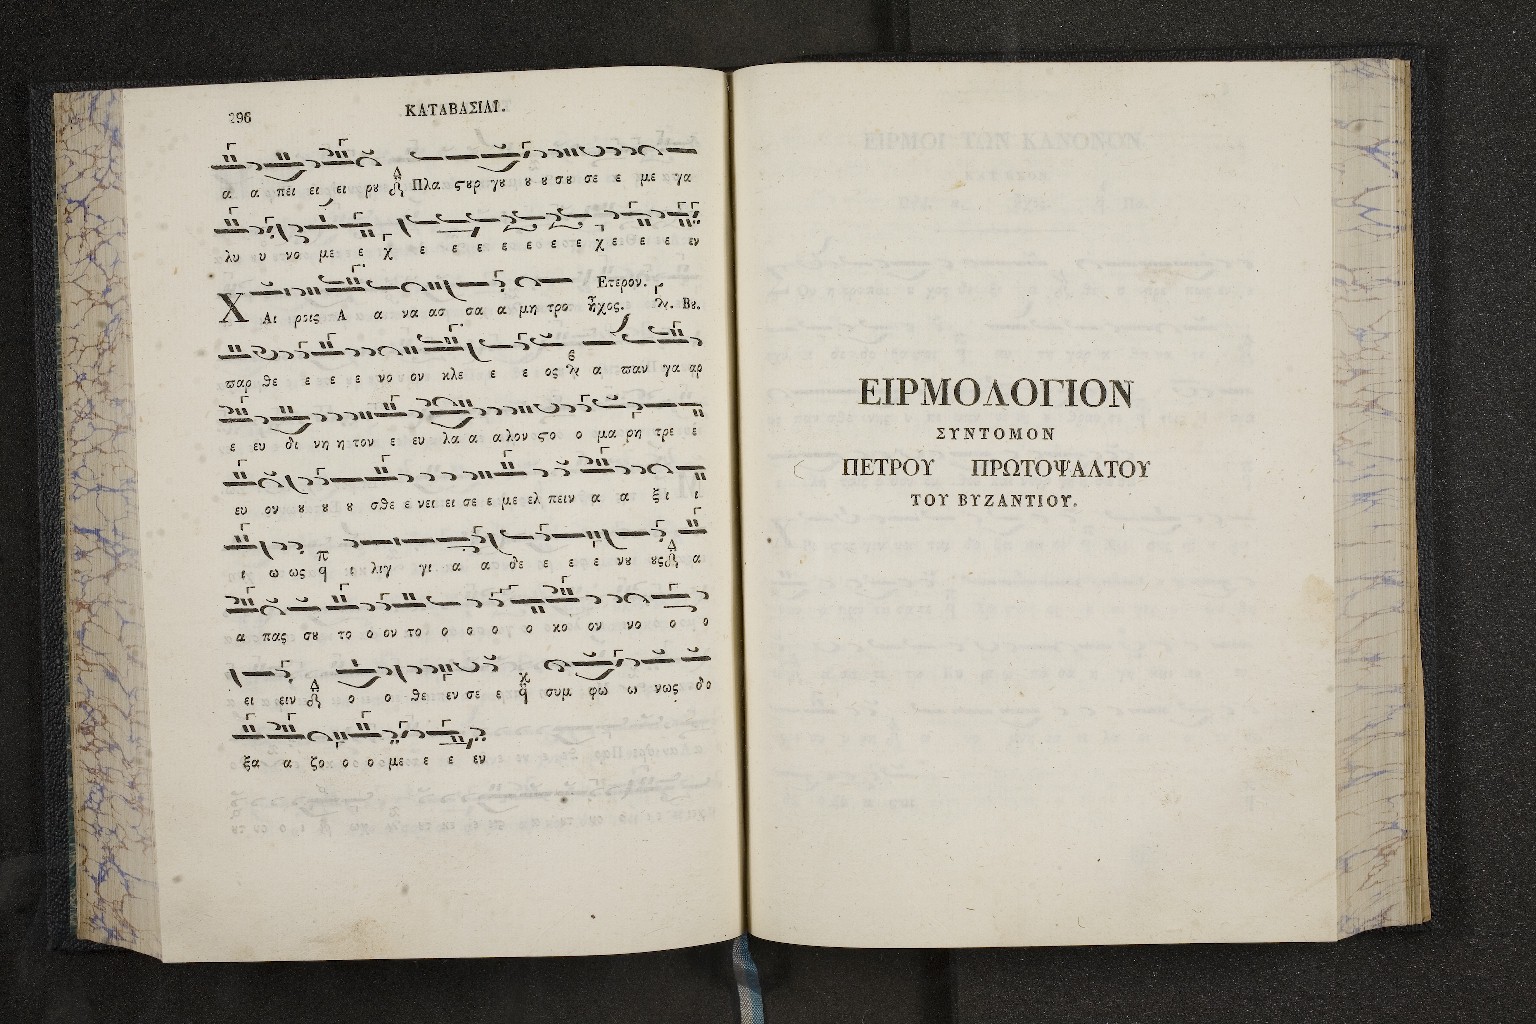 296
ΚΑΤΑΒΑΣΙΑΙ.
α α πει ει ει ρυ Πλα ςυρ γυ υ υ συ σε ε με γα
λυ υ νο με ε χ ε ε ε ε ε ε ε χ ε ε ε εν
Ετερον.
Χ Αι ροις Α α να ασ σα α μη τρο ἦχος. Βυ.
παρ θε ε ε ε νο ον κλε ε ε ος α παν γα αρ
ε ευ δι νη η τον ε ευ λα α α λον ςο ο μα ρη τρε ε
ευ ον υ υ υ σθε ε νει ει σε ε με ελ πειν α α ξι ι
ι ω ως ι λιγ γι α α δε ε ε ε νυ υς α
α πας συ το ο ον το ο ο ο ο κο ον νο ο ο
ει ειν ο ο θε εν σε ε συμ φω ω νως δο
ξα α ζο ο ο με ε ε εν
ΕΙΡΜΟΛΟΓΙΟΝ
ΣΥΝΤΟΜΟΝ
ΠΕΤΡΟΥ ΠΡΩΤΟΨΑΛΤΟΥ
ΤΟΥ ΒΥΖΑΝΤΙΟΥ.